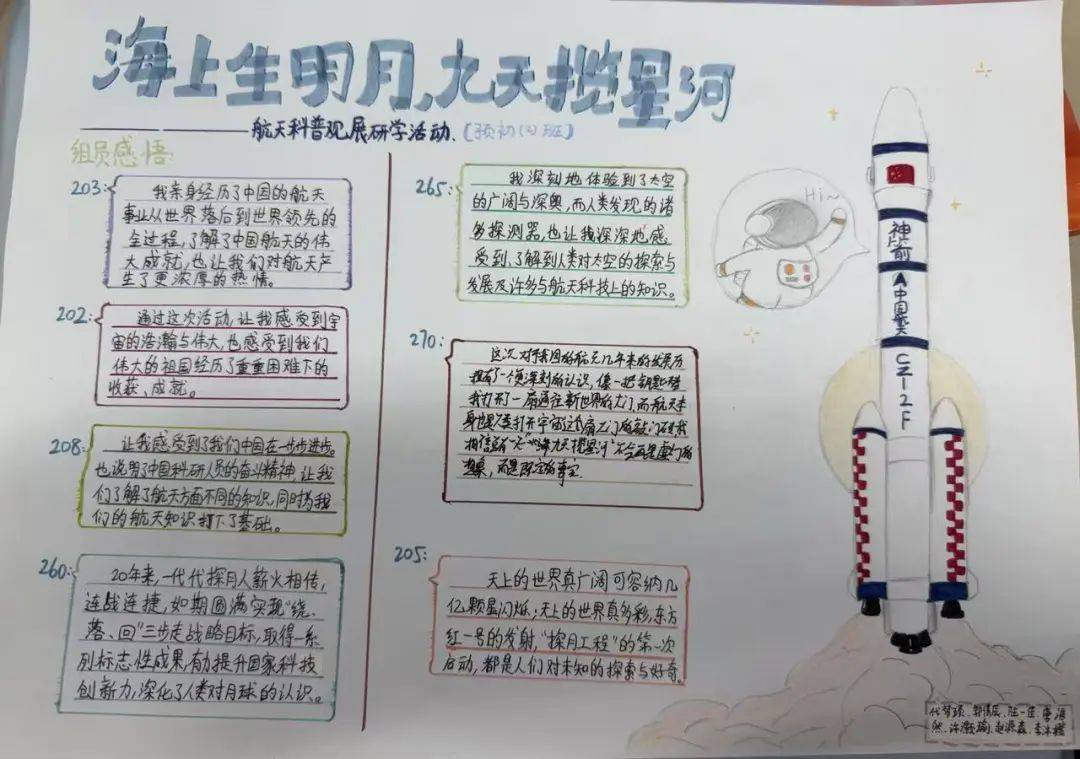 海上生明月,九天揽星河
———航天科普观展研学活动.
组员感悟:
203:
我亲身经历了中国的航天
事业从世界落后到世界领先的
全过程,了解了中国航天的伟
大成就,也让我们对航天产
生了更浓厚的热情。
202:
通过这次活动,让我感受到宇
宙的浩瀚与伟大,也感受到我们
伟大的祖国经历了重重困难下的
收获、成就。
208:
让我感受到了我们中国在一步步进步。
也说明了中国科研人员的奋斗精神,让我
们了解了航天方面不同的知识,同时为我
们的航天知识打下了基础。
260:
20年来,一代代探月人薪火相传,
连战连捷,如期圆满实现“绕、
落、回”三步走战略目标,取得一系
列标志性成果,有力提升国家科技
创新力,深化了人类对月球的认识。
265:
我深刻地体验到了太空
的广阔与深奥,而人类发现的诸
多探测器,也让我深深地感
受到,了解到人类对太空的探索与
发展及许多与航天科技上的知识。
270:
这次对于我国的航天几年来的发展历
我有了一个更深刻的认识,像一把钥匙替
我打开了一扇通往新世界的大门,而航天本
身也是人类打开宇宙这扇大门的
相信
205:
天上的世界真广阔可容纳几
亿颗星闪烁,天上的世界真多彩,东方
红一号的发射,“探月工程”的第一次
启动,都是人们对未知的探索与好奇。
Hi~
神箭
中国航天
CZ-2F